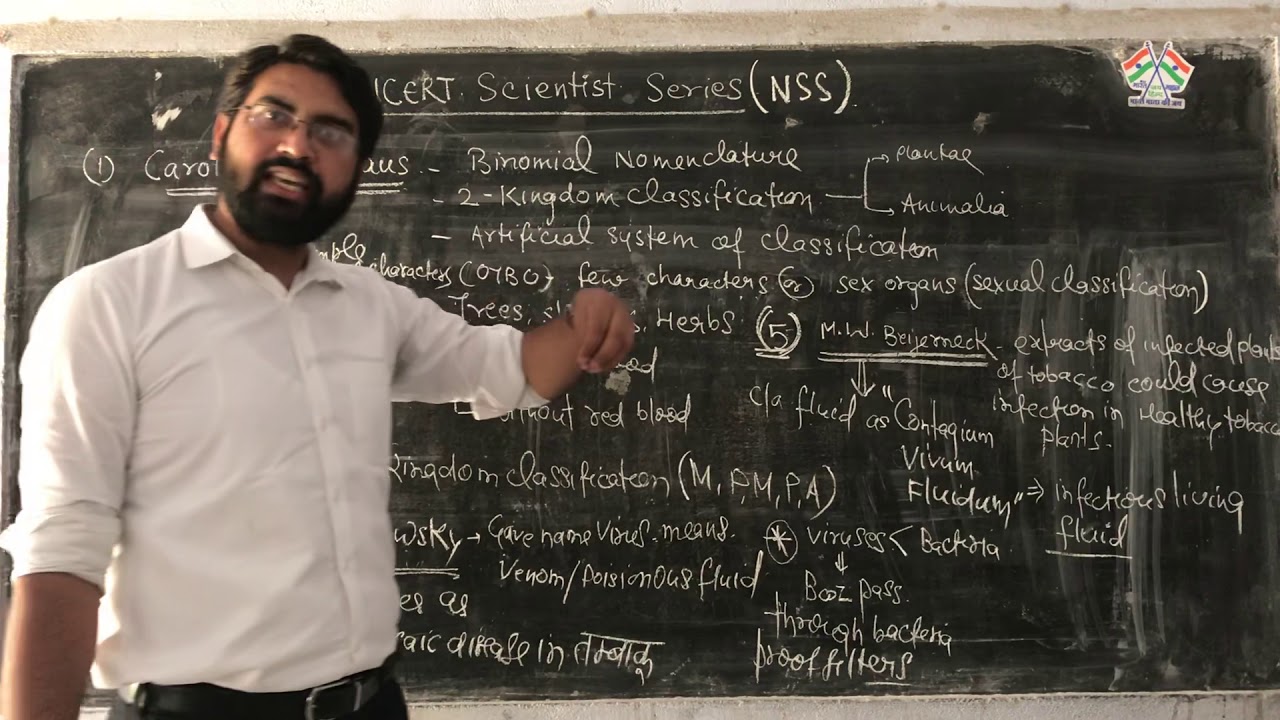 ICERT Scientist Series (NSS).
(1) Caro aus - Binomial Nomenclature
Plantae
- 2-Kingdom classification
Animalia
- Artificial system of classification
characters (OTBO) few characters or sex organs (sexual classification)
Trees, Herbs
(5) M.W. Beijerneck - extracts of infected plants
of tobacco could cause
infection in Healthy tobacco
plants.
c/a fluid as "Contagium
Vivum
Fluidum" ⇒ infectious living
fluid
without red blood
Kingdom classification (M, P, M, P, A)
wsky → Gave name Virus. means.
Venom/Poisionous fluid
es as
aic disease in तम्बाकू
* viruses < Bacteria
Bcoz pass.
through bacteria
proof filters